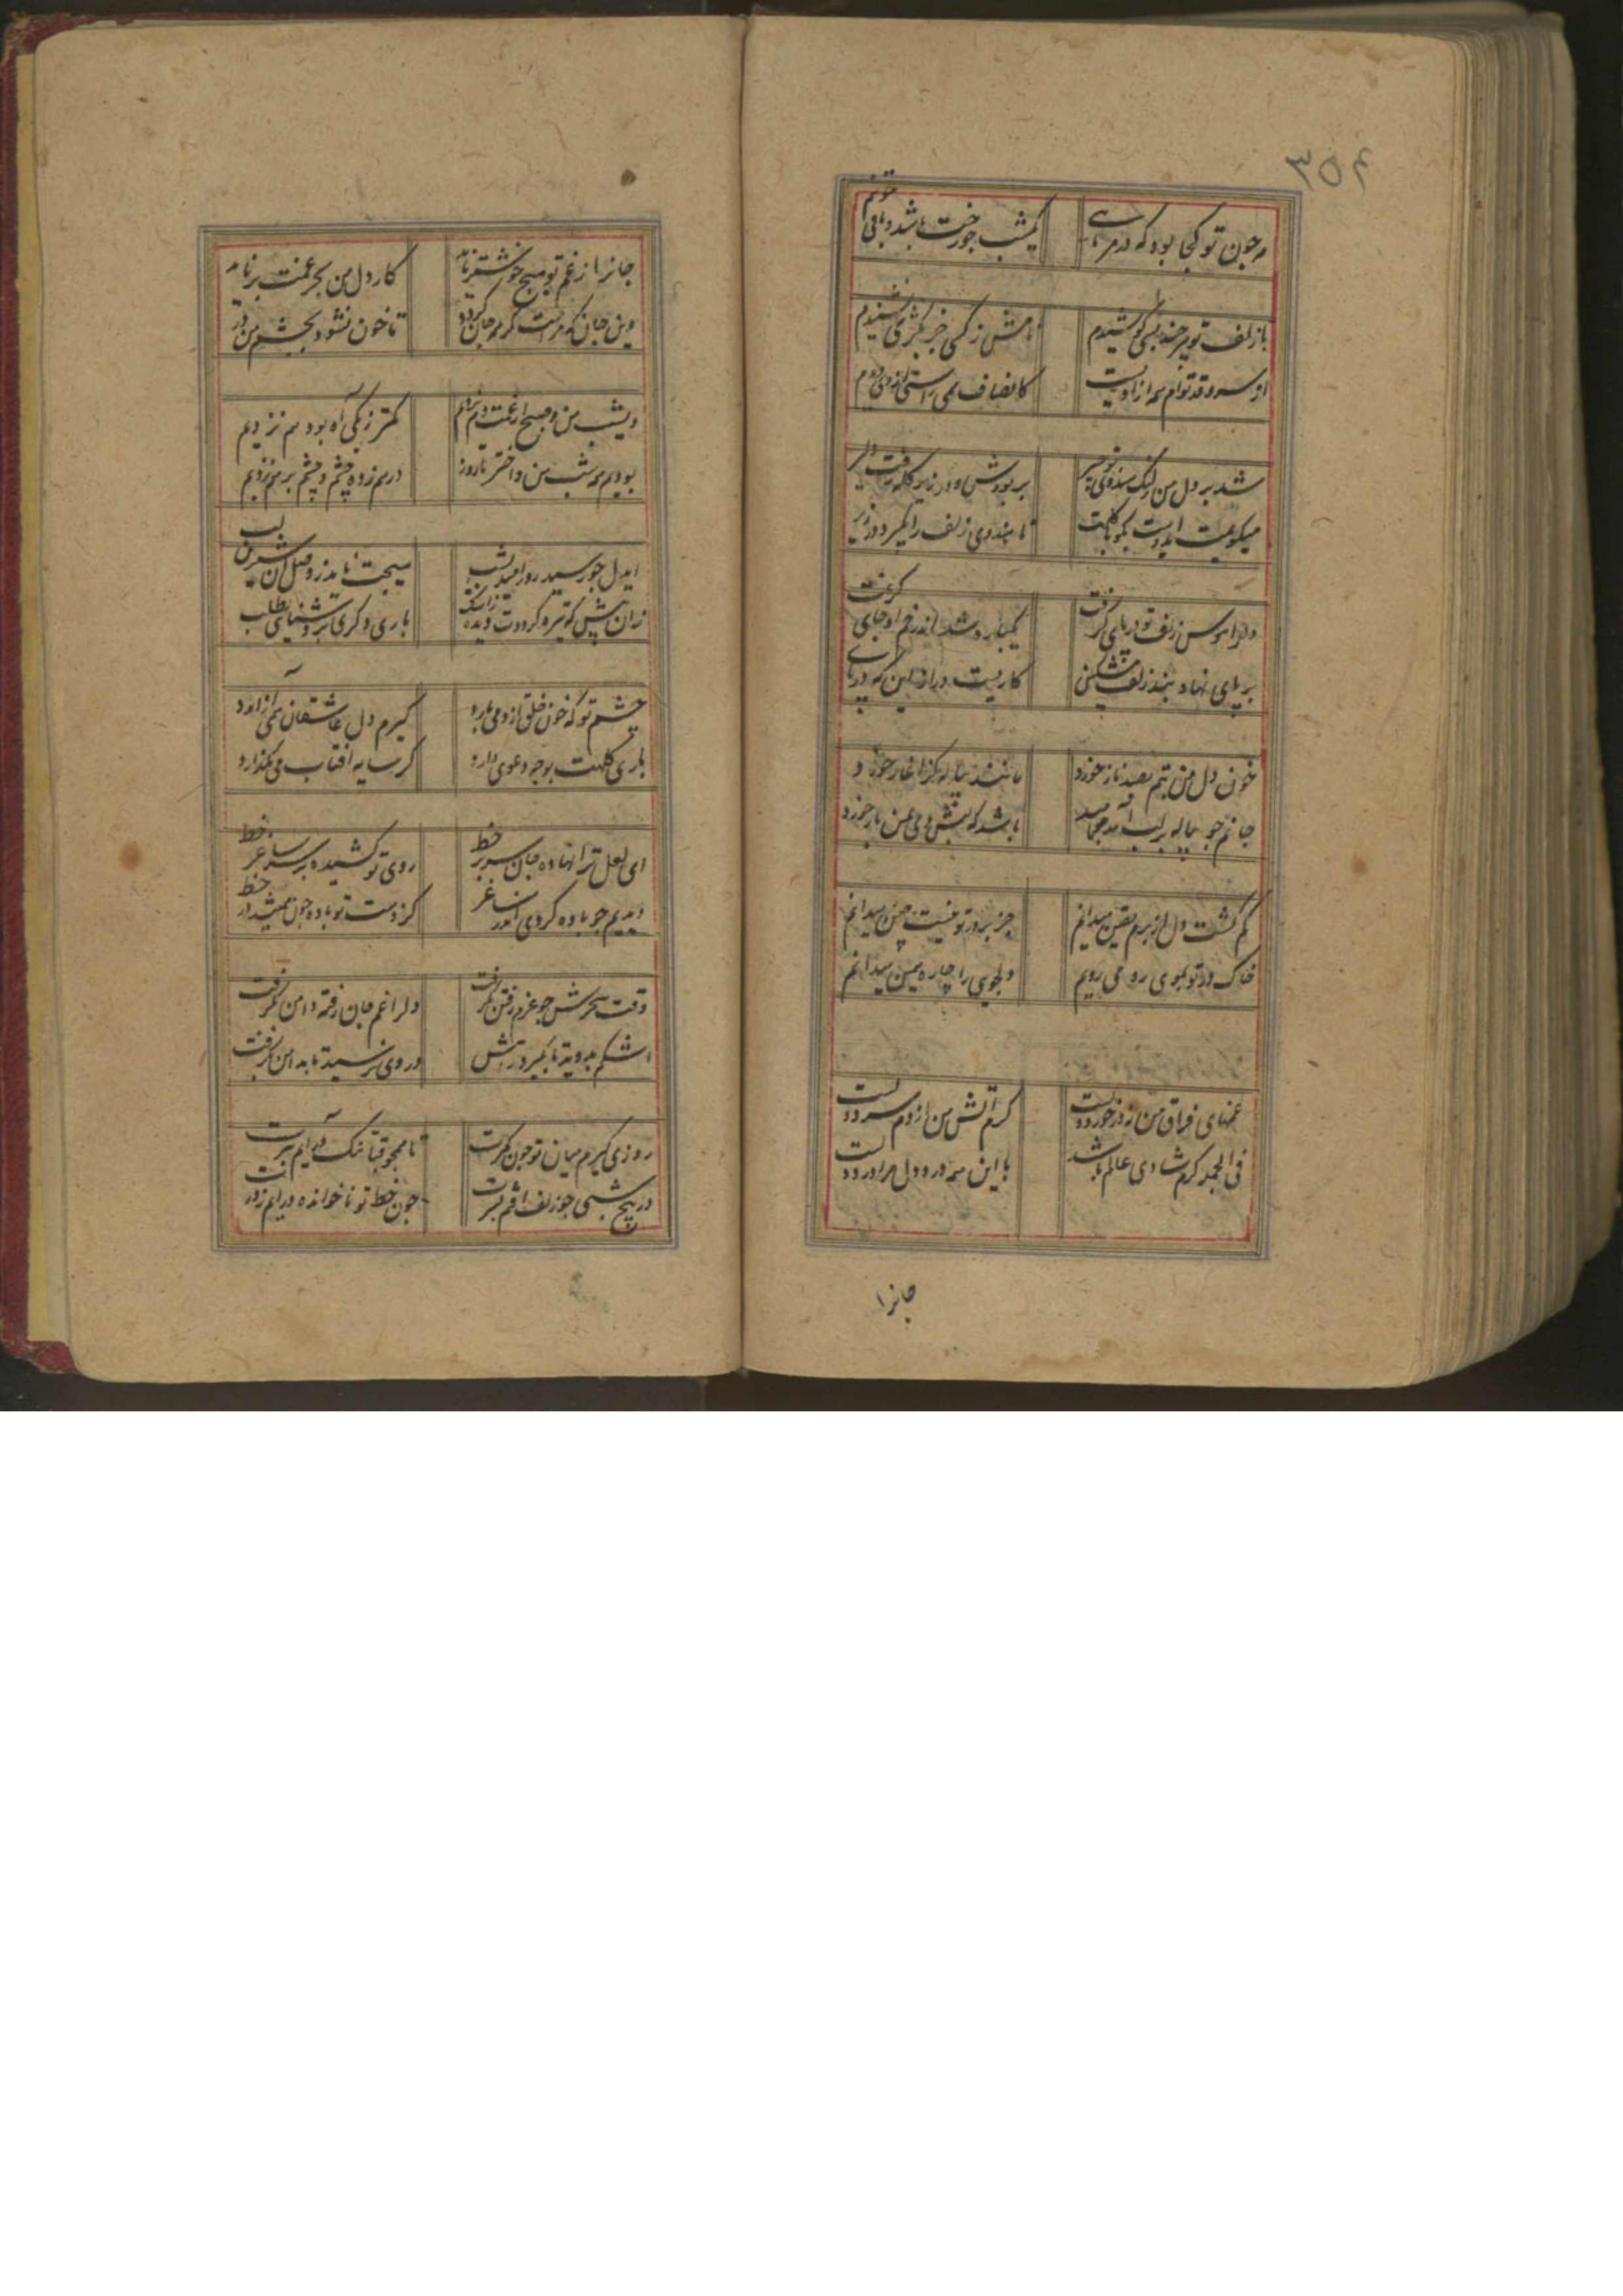 ۳۵۴
مه چون تو کجا بود که در هر ماهی
یکشب چو رخت باشد و باقی
با زلف تو هر چند بسی کوشیدم
نامش ز کسی جز
از سرو قد توام همه ازادیست
کانصاف همی راستی از وی دیدم
شد بر دل من
بربودش و در زیر کله رفت دلیر
میکویمت
تا هندوی زلف را نگیرد در زیر
دلرا هوس زلف تو در پای گرفت
یکباره شد اندر خم او جای گرفت
بر پای نهاد بند زلف
کاریست دراز این که در پای
خون دل من بتم بصد ناز خورد
مانند پیاله کز اغاز خورد
جانم چو پیاله بر لب آمد
باشد که بنش دمی بمن باز خورد
گم گشت دل از برم یقین میدانم
جز بر در تو نیست چنین میدانم
خاک در تو بموی رو می روبم
دلجوی را چاره همین میدانم
غمهای فراق من ز در خورد دلست
کرم آتش من از دم سرد دلست
فی الجمله کرم شادی عالم باشد
با این همه درد دل مرا درد دلست
جانرا
جانرا ز غم تو هیچ خوشتر نامد
کار دل من بجز غمت بر نامد
وین جان که مراست گر همه جان گردد
تا خون نشود بچشم من در
دیشب من و صبح از غمت دم نزدیم
کمتر ز یکی آه بود هم نزدیم
بودیم همه شب من و اختر تا روز
در هم زده چشم و چشم بر هم نزدیم
ایدل چو رسید روز امید بشب
هیچت نامد ز وصل آن شیرین لب
زان پیش که تیره گرددت دیده ز اشک
باری دگری بروشنیی بطلب
چشم تو که خون خلق ازو می بارد
گیرم دل عاشقان همی آزارد
باری کلهت بوجه دعوی دارد
کر سایه افتاب می نگذارد
ای لعل ترا نهاده جان بر سر خط
روی تو کشیده بر سر ساغر خط
دیدیم چو باده کردی اندر ساغر
کز دست تو باده چون همیشد در خط
وقت سحرش چو عزم رفتن بگرفت
دلرا غم جان رفته دامن بگرفت
اشکم بدوید تا بگیرد راهش
در وی نرسید تا بدامن بگرفت
روزی گیرم میان تو چون کمرت
تا همچو قبا تنک در آیم ببرت
در پیچ شبی چو زلف افتم بسرت
چون خط تو ناخوانده درآیم ز درت